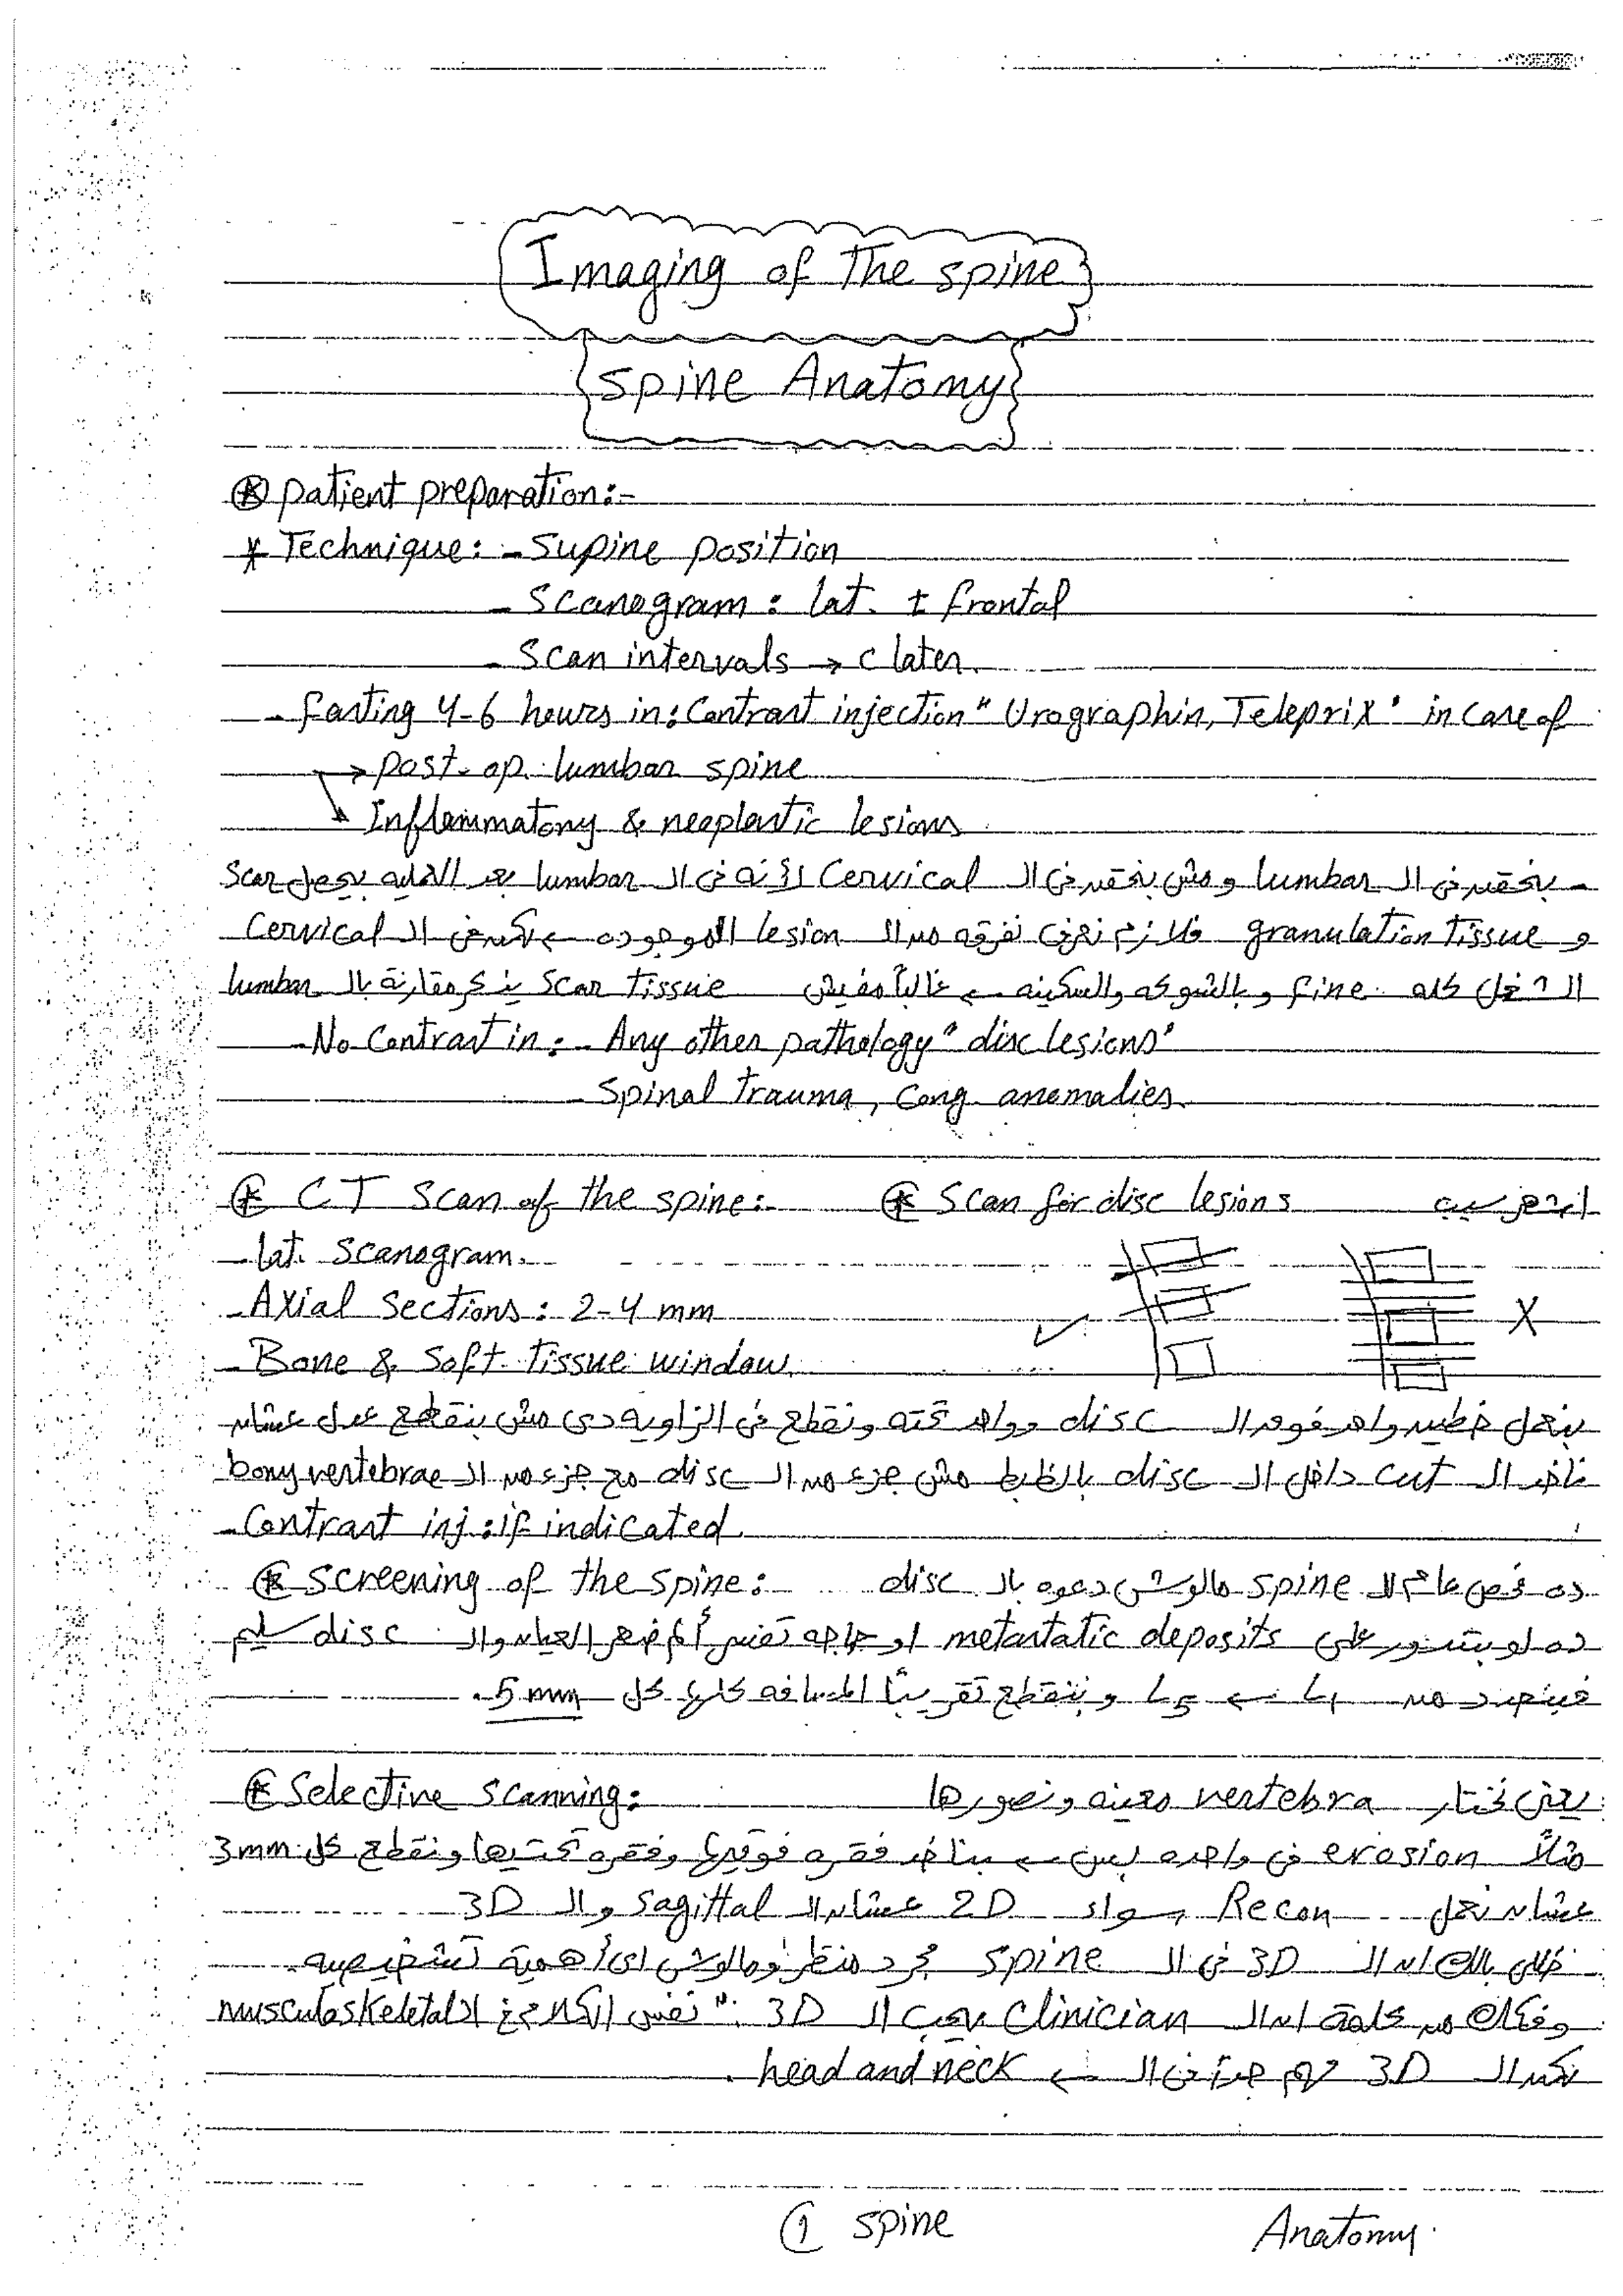 Imaging of The spine
Spine Anatomy
⊛ patient preparation:-
* Technique: - Supine position
- Scanogram: lat. ± frontal
- Scan intervals → c later.
- fasting 4-6 hours in: Contrast injection "Urographin, Teleprix" in case of
→ post-op. lumbar spine
↘ Inflammatory & neoplastic lesions
- بنحقن في ال lumbar ومش بنحقن في ال Cervical لأنه في ال lumbar بعد العمليه بيحصل scar
و granulation tissue فلازم نعرف نفرقه من ال lesion الموجوده ← لكن في ال Cervical
الشغل كله fine وبالشوكه والسكينه ← غالباً مفيش scar tissue يذكر مقارنة بال lumbar
- No Contrast in: - Any other pathology "disc lesions"
- Spinal trauma, Cong. anomalies.
⊛ CT Scan of the spine:- ⊛ Scan for disc lesions
- lat. Scanogram.
- Axial Sections: 2-4 mm
✓ X
- Bone & Soft tissue window
بنعمل خطين واحد فوق ال disc وواحد تحته ونقطع في الزاويه دي مش بنقطع عدل عشان
ناخد ال cut داخل ال disc بالظبط مش جزء من ال disc مع جزء من ال bony vertebrae
- Contrast inj: if indicated
⊛ Screening of the spine:- ده فحص عام لل spine مالوش دعوه بال disc
ده لو بتدور على metastatic deposits او حاجه تفسر ألم ضهر العيان وال disc سليم
فبنصور من L1 ← L5 وبنقطع تقريباً المسافه كلها كل 5 mm.
⊛ Selective scanning: يعني نختار vertebra معينه ونصورها
مثلاً erosion في واحده بس ← بناخد فقره فوقيها وفقره تحتيها ونقطع كل 3mm
عشان نعمل Recon سواء 2D عشان ال sagittal وال 3D
خلي بالك ان ال 3D في ال spine مجرد منظر ومالوش اي أهمية تشخيصيه
وفكك من كلمة ان ال Clinician بيحب ال 3D "نفس الكلام في ال musculoskeletal
لكن ال 3D مهم جداً في ال ← head and neck.
① spine
Anatomy.